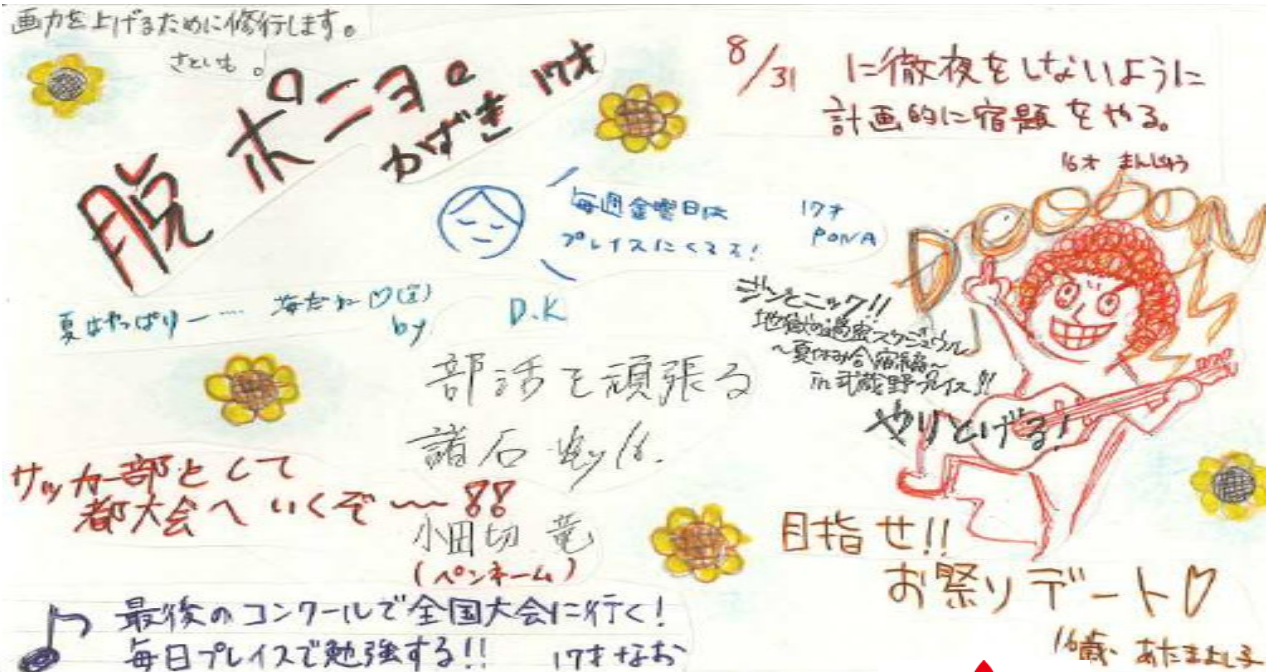 画力を上げるために修行します。
さといも。
脱ポニョ。
かばき 17才
8/31 に徹夜をしないように
計画的に宿題をやる。
16才 まんじゅう
毎週金曜日は
プレイスにくるヨ!
17才
PONA
DOOOON
夏はやっぱりー…… 海だねー♡
by D.K
ジンとニック!!
地獄の過密スケジュウル
〜夏休み合宿編〜
in 武蔵野プレイス!!
やりとげる!
部活を頑張る
諸石
サッカー部として
都大会へいくぞ〜!!
小田切 竜
(ペンネーム)
目指せ!!
お祭りデート♡
16歳
最後のコンクールで全国大会に行く!
毎日プレイスで勉強する!! 17才 なお